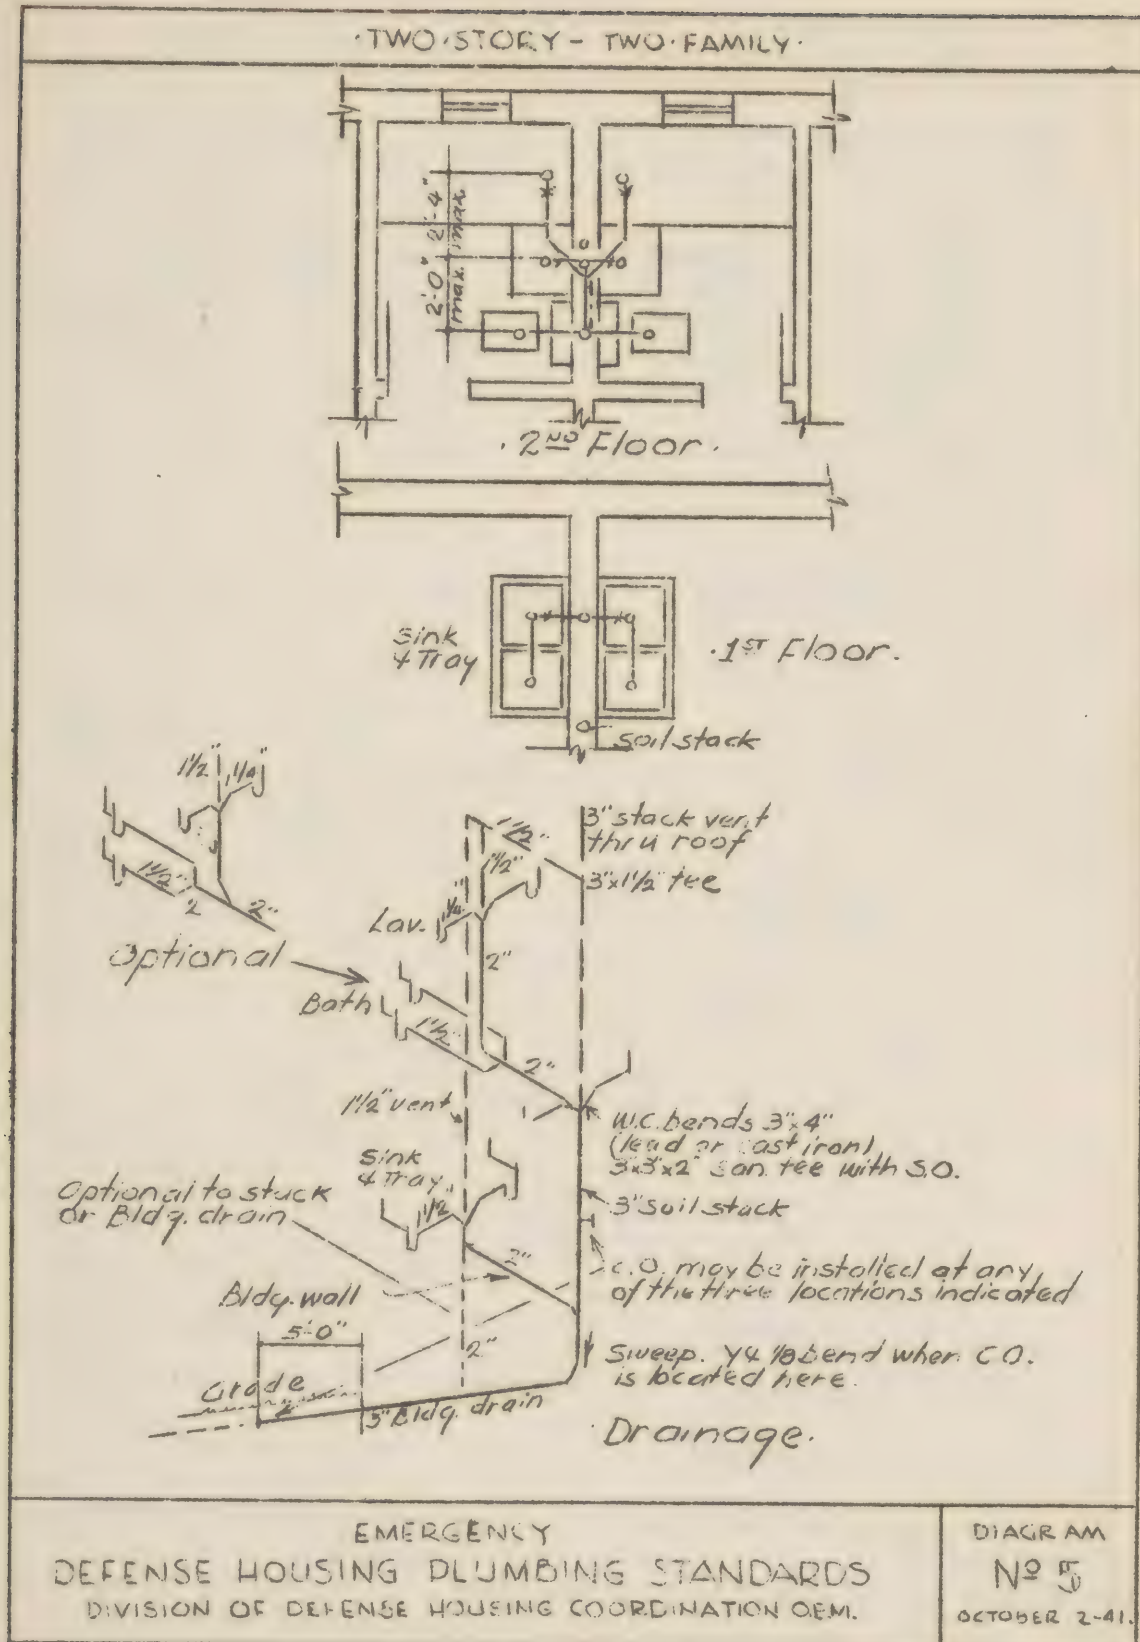 ·TWO·STORY - TWO·FAMILY·
2'-4"
max.
2'-0"
max.
·2ND Floor·
sink
& Tray
·1ST Floor.
soil stack
1½"
1¼"
1½"
2
2"
Optional
1½"
1½"
3" stack vent
thru roof
3"x1½" tee
1¼"
Lav.
2"
Bath
1½"
2"
1½" vent
W.C. bends 3"x4"
(lead or cast iron)
3"x3"x2" san. tee with S.O.
sink
& Tray
1½
3" soil stack
Optional to stack
or Bldg. drain
2"
C.O. may be installed at any
of the three locations indicated
Bldg. wall
5'-0"
2"
Sweep. Y & ⅛ bend when C.O.
is located here.
Grade
3" Bldg. drain
Drainage.
EMERGENCY
DEFENSE HOUSING PLUMBING STANDARDS
DIVISION OF DEFENSE HOUSING COORDINATION O.E.M.
DIAGRAM
Nº 5
OCTOBER 2-41.